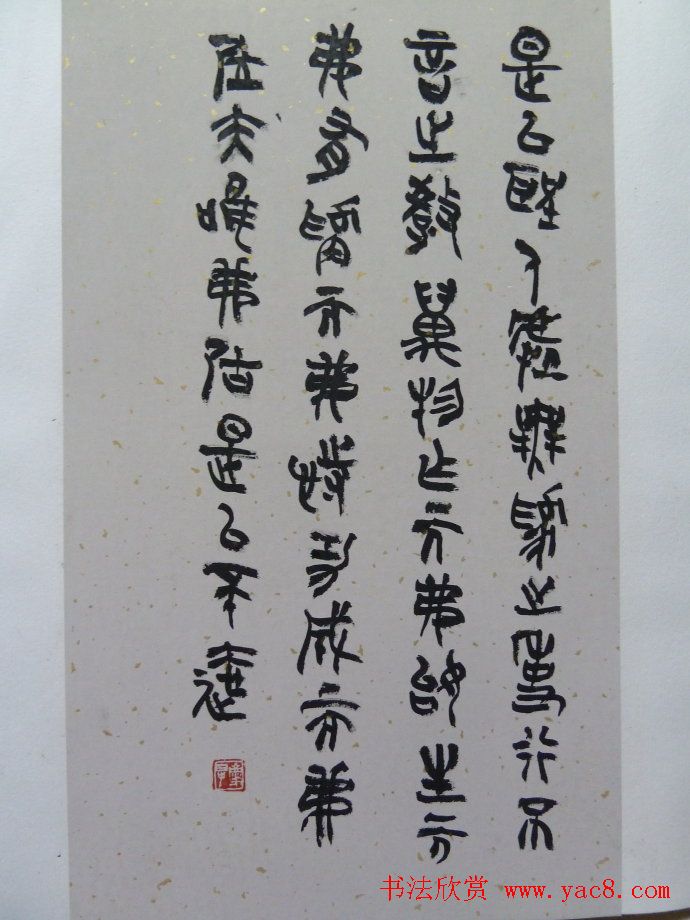 是以聖人處無為之事行不
言之教萬物作而弗始生而
弗有為而弗恃功成而弗
居夫唯弗居是以不去
书法欣赏 www.yac8.com